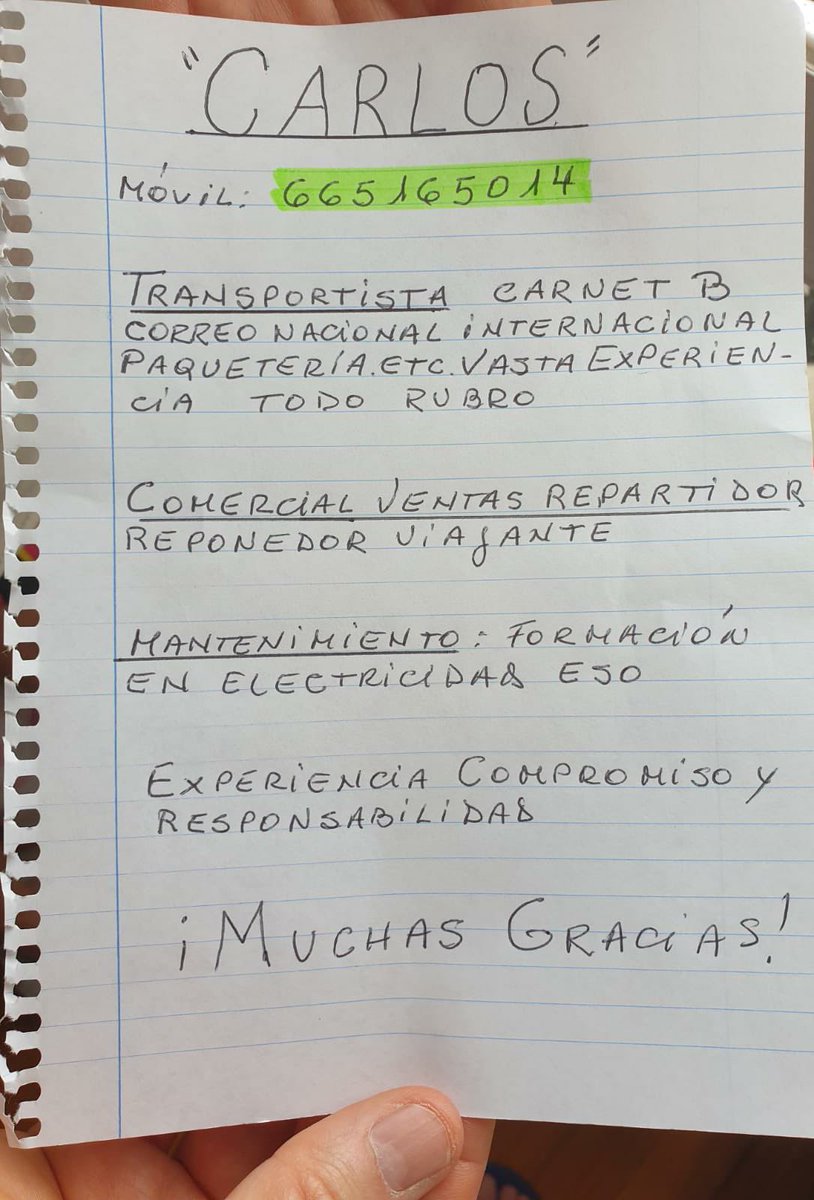 "CARLOS"
MÓVIL: 665165014
TRANSPORTISTA CARNET B
CORREO NACIONAL INTERNACIONAL
PAQUETERÍA.ETC.VASTA EXPERIEN-
CIA TODO RUBRO
COMERCIAL VENTAS REPARTIDOR
REPONEDOR VIAJANTE
MANTENIMIENTO: FORMACIÓN
EN ELECTRICIDAD ESO
EXPERIENCIA COMPROMISO Y
RESPONSABILIDAD
¡MUCHAS GRACIAS!